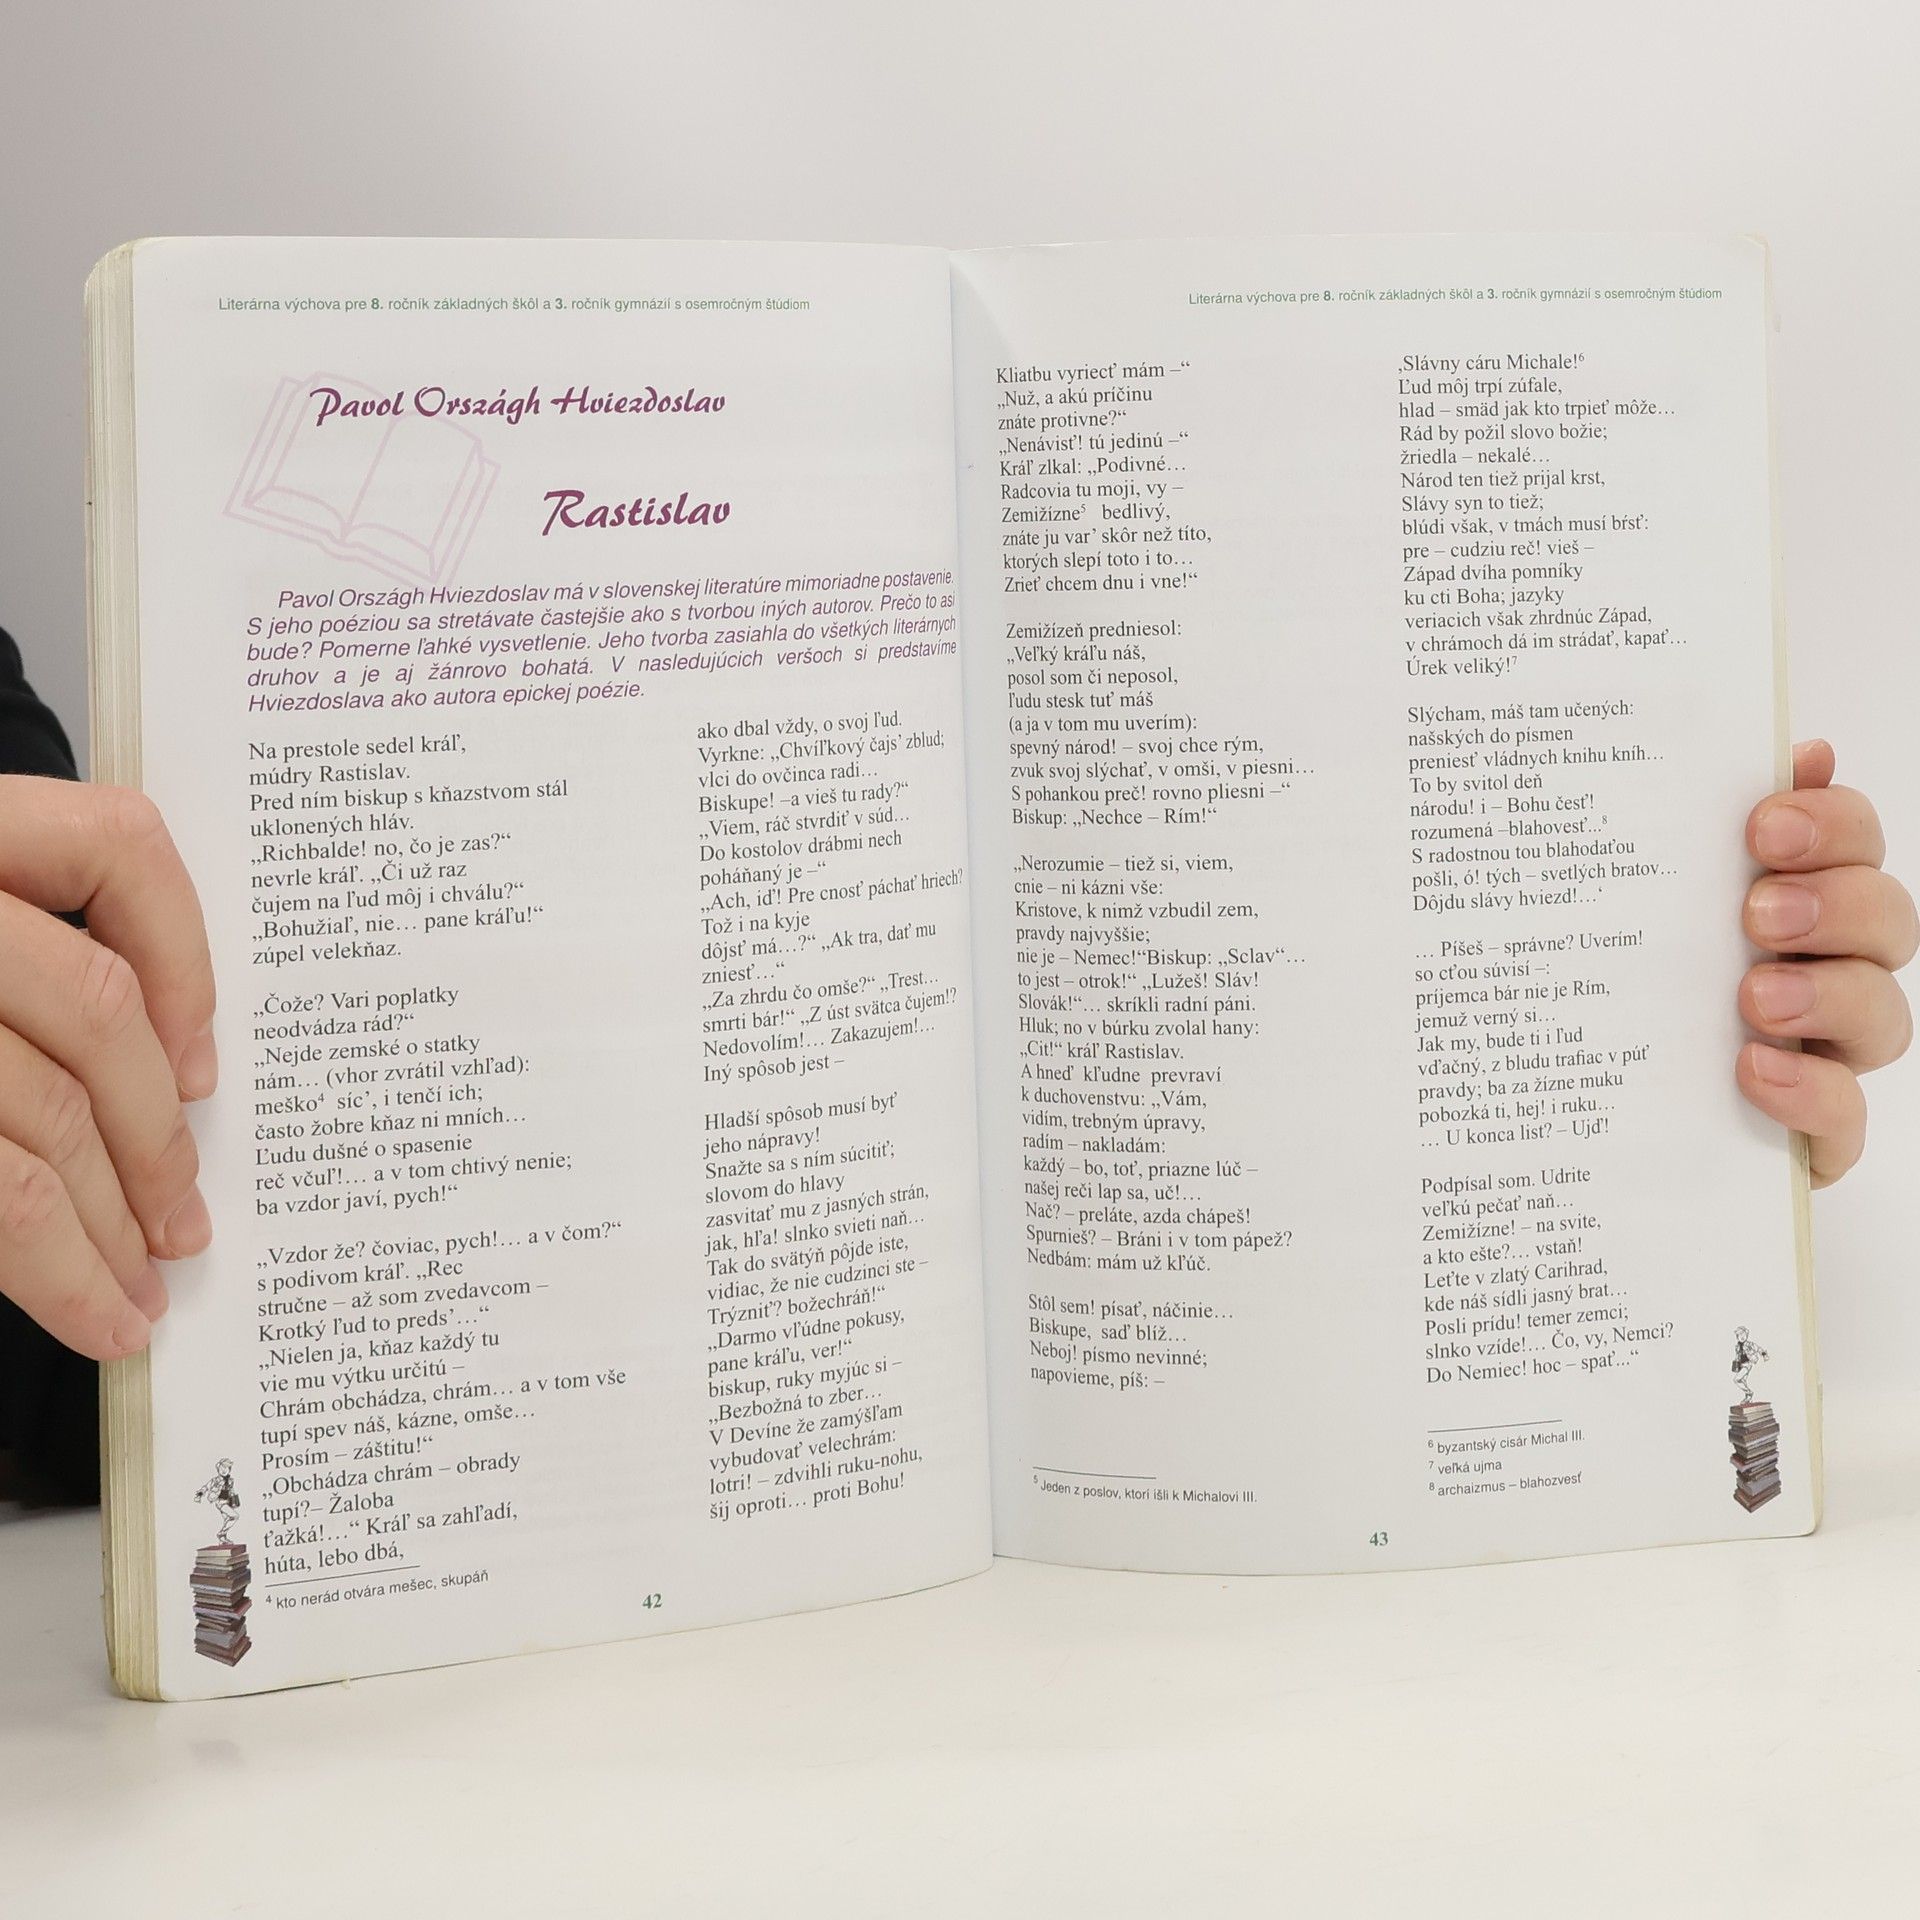 Literárna výchova pre 8. ročník základných škôl a 3. ročník gymnázií s osemročným štúdiom
Pavol Országh Hviezdoslav
Rastislav
Pavol Országh Hviezdoslav má v slovenskej literatúre mimoriadne postavenie.
S jeho poéziou sa stretávate častejšie ako s tvorbou iných autorov. Prečo to asi
bude? Pomerne ľahké vysvetlenie. Jeho tvorba zasiahla do všetkých literárnych
druhov a je aj žánrovo bohatá. V nasledujúcich veršoch si predstavíme
Hviezdoslava ako autora epickej poézie.
Na prestole sedel kráľ,
múdry Rastislav.
Pred ním biskup s kňazstvom stál
uklonených hláv.
„Richbalde! no, čo je zas?“
nevrle kráľ. „Či už raz
čujem na ľud môj i chválu?“
„Bohužiaľ, nie… pane kráľu!“
zúpel velekňaz.
„Čože? Vari poplatky
neodvádza rád?“
„Nejde zemské o statky
nám… (vhor zvrátil vzhľad):
meško⁴ síc’, i tenčí ich;
často žobre kňaz ni mních…
Ľudu dušné o spasenie
reč včuľ!… a v tom chtivý nenie;
ba vzdor javí, pych!“
„Vzdor že? čoviac, pych!… a v čom?“
s podivom kráľ. „Rec
stručne – až som zvedavcom –
Krotký ľud to preds’…“
„Nielen ja, kňaz každý tu
vie mu výtku určitú –
Chrám obchádza, chrám… a v tom vše
tupí spev náš, kázne, omše…
Prosím – záštitu!“
„Obchádza chrám – obrady
tupí?– Žaloba
ťažká!…“ Kráľ sa zahľadí,
húta, lebo dbá,
⁴ kto nerád otvára mešec, skupáň
ako dbal vždy, o svoj ľud.
Vyrkne: „Chvíľkový čajs’ zblud;
vlci do ovčinca radi…
Biskupe! –a vieš tu rady?“
„Viem, ráč stvrdiť v súd…
Do kostolov drábmi nech
poháňaný je –“
„Ach, iď! Pre cnosť páchať hriech?
Tož i na kyje
dôjsť má…?“ „Ak tra, dať mu
zniesť…“
„Za zhrdu čo omše?“ „Trest…
smrti bár!“ „Z úst svätca čujem!?
Nedovolím!… Zakazujem!…
Iný spôsob jest –
Hladší spôsob musí byť
jeho nápravy!
Snažte sa s ním súcitiť;
slovom do hlavy
zasvitať mu z jasných strán,
jak, hľa! slnko svieti naň…
Tak do svätýň pôjde iste,
vidiac, že nie cudzinci ste –
Trýzniť? božechráň!“
„Darmo vľúdne pokusy,
pane kráľu, ver!“
biskup, ruky myjúc si –
„Bezbožná to zber…
V Devíne že zamýšľam
vybudovať velechrám:
lotri! – zdvihli ruku-nohu,
šij oproti… proti Bohu!
42
Literárna výchova pre 8. ročník základných škôl a 3. ročník gymnázií s osemročným štúdiom
Kliatbu vyriecť mám –“
„Nuž, a akú príčinu
znáte protivne?“
„Nenávisť! tú jedinú –“
Kráľ zlkal: „Podivné…
Radcovia tu moji, vy –
Zemižízne⁵ bedlivý,
znáte ju var’ skôr než títo,
ktorých slepí toto i to…
Zrieť chcem dnu i vne!“
Zemižízeň predniesol:
„Veľký kráľu náš,
posol som či neposol,
ľudu stesk tuť máš
(a ja v tom mu uverím):
spevný národ! – svoj chce rým,
zvuk svoj slýchať, v omši, v piesni…
S pohankou preč! rovno pliesni –“
Biskup: „Nechce – Rím!“
„Nerozumie – tiež si, viem,
cnie – ni kázni vše:
Kristove, k nimž vzbudil zem,
pravdy najvyššie;
nie je – Nemec!“Biskup: „Sclav“…
to jest – otrok!“ „Lužeš! Sláv!
Slovák!“… skríkli radní páni.
Hluk; no v búrku zvolal hany:
„Cit!“ kráľ Rastislav.
A hneď kľudne prevraví
k duchovenstvu: „Vám,
vidím, trebným úpravy,
radím – nakladám:
každý – bo, toť, priazne lúč –
našej reči lap sa, uč!…
Nač? – preláte, azda chápeš!
Spurnieš? – Bráni i v tom pápež?
Nedbám: mám už kľúč.
Stôl sem! písať, náčinie…
Biskupe, saď blíž…
Neboj! písmo nevinné;
napovieme, píš: –
⁵ Jeden z poslov, ktorí išli k Michalovi III.
‚Slávny cáru Michale!⁶
Ľud môj trpí zúfale,
hlad – smäd jak kto trpieť môže…
Rád by požil slovo božie;
žriedla – nekalé…
Národ ten tiež prijal krst,
Slávy syn to tiež;
blúdi však, v tmách musí bŕsť:
pre – cudziu reč! vieš –
Západ dvíha pomníky
ku cti Boha; jazyky
veriacich však zhrdnúc Západ,
v chrámoch dá im strádať, kapať…
Úrek veliký!⁷
Slýcham, máš tam učených:
našských do písmen
preniesť vládnych knihu kníh…
To by svitol deň
národu! i – Bohu česť!
rozumená –blahovesť...⁸
S radostnou tou blahodaťou
pošli, ó! tých – svetlých bratov…
Dôjdu slávy hviezd!…‘
… Píšeš – správne? Uverím!
so cťou súvisí –:
príjemca bár nie je Rím,
jemuž verný si…
Jak my, bude ti i ľud
vďačný, z bludu trafiac v púť
pravdy; ba za žízne muku
pobozká ti, hej! i ruku…
… U konca list? – Ujď!
Podpísal som. Udrite
veľkú pečať naň…
Zemižízne! – na svite,
a kto ešte?… vstaň!
Leťte v zlatý Carihrad,
kde náš sídli jasný brat…
Posli prídu! temer zemci;
slnko vzíde!… Čo, vy, Nemci?
Do Nemiec! hoc – spať...“
⁶ byzantský cisár Michal III.
⁷ veľká ujma
⁸ archaizmus – blahozvesť
43